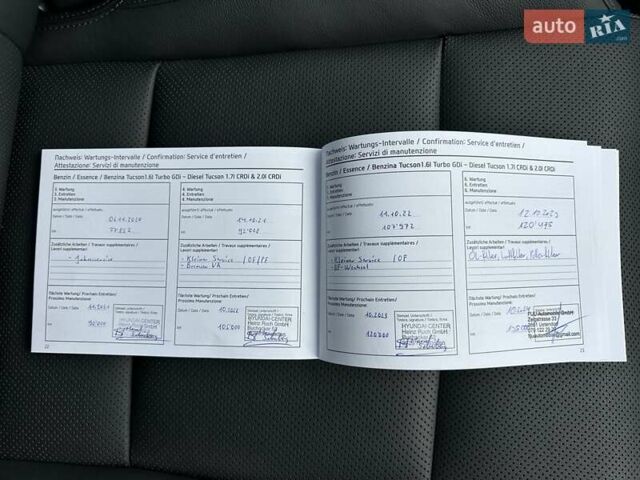 auto RIA
.com
Nachweis: Wartungs-Intervalle / Confirmation: Service d'entretien /
Attestazione: Servizi di manutenzione
Benzin / Essence / Benzina Tucson1.6l Turbo GDi – Diesel Tucson 1.7l CRDi & 2.0l CRDi
5. Wartung
5. Entretien
5. Manutenzione
ausgeführt / effectué / effettuato:
Datum / Date / Data
km
Zusätzliche Arbeiten / Travaux supplémentaires /
Lavori supplementari
- Jahresservice
Nächste Wartung/ Prochain Entretien/
Prossima Manutenzione:
Datum / Date / Data
km
90'000
22
6. Wartung
6. Entretien
6. Manutenzione
ausgeführt / effectué / effettuato:
Datum / Date / Data
km
Zusätzliche Arbeiten / Travaux supplémentaires /
Lavori supplementari
- Kleiner Service / OF/PF
- Bremsen VA
Nächste Wartung/ Prochain Entretien/
Prossima Manutenzione:
Datum / Date / Data 10.2022
km 105'000
HYUNDAI-CENTER
Heinz Puch GmbH
Nachweis: Wartungs-Intervalle / Confirmation: Service d'entretien /
Attestazione: Servizi di manutenzione
Benzin / Essence / Benzina Tucson1.6l Turbo GDi – Diesel Tucson 1.7l CRDi & 2.0l CRDi
7. Wartung
7. Entretien
7. Manutenzione
ausgeführt / effectué / effettuato:
Datum / Date / Data 11.10.22
km 107'972
Zusätzliche Arbeiten / Travaux supplémentaires /
Lavori supplementari
- Kleiner Service / OF
- BF-Wechsel
Nächste Wartung/ Prochain Entretien/
Prossima Manutenzione:
Datum / Date / Data 10.2023
km 120'000
HYUNDAI-CENTER
Heinz Puch GmbH
8. Wartung
8. Entretien
8. Manutenzione
ausgeführt / effectué / effettuato:
Datum / Date / Data 12.10.2023
km 120'475
Zusätzliche Arbeiten / Travaux supplémentaires /
Lavori supplementari
Öl-filter, Luftfilter, Pollenfilter
Nächste Wartung/ Prochain Entretien/
Prossima Manutenzione:
Datum / Date / Data
km
Automobile GmbH
Zelgstrasse 33
3661 Uetendorf
23